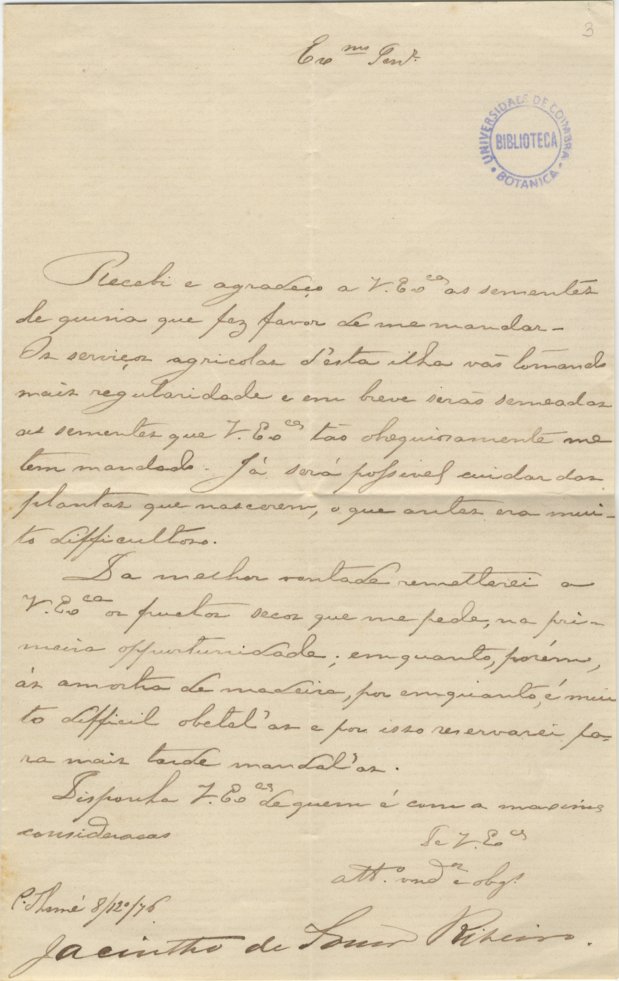 3
Ex.mo Snr.
UNIVERSIDADE DE COIMBRA
BIBLIOTECA
BOTANICA
Recebi e agradeço a V. Ex.cia as sementes
de quina que fez favor de me mandar-
Os serviços agricolas d'esta ilha vão tomando
mais regularidade e em breve serão semeadas
as sementes que V. Ex.cia tão obsequiosamente me
tem mandado. Já será possivel cuidar das
plantas que nascerem, o que antes era mui-
to difficultoso.
Da melhor vontade remetterei a
V. Ex.cia os fructos secos que me pede, na pri-
meira opportunidade; emquanto, porém,
ás amostra de madeira, por emquanto, é mui
to difficil obtel'as e por isso reservarei pa-
ra mais tarde mandal'as.
Disponha V. Ex.cia de quem é com a maxima
consideracao
De V. Ex.cia
att.o vnd.or e obg.o
S. Thomé 8/12/76
Jacintho de Sousa Ribeiro.